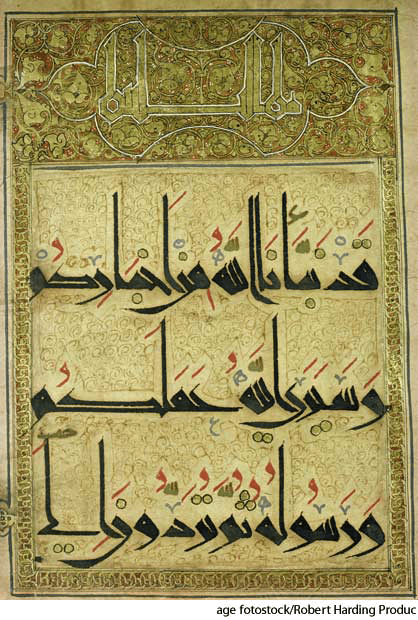 قد نبأنا الله من اخباركم
وسيرى الله عملكم
ورسوله ثم تردون الى
age fotostock/Robert Harding Produc